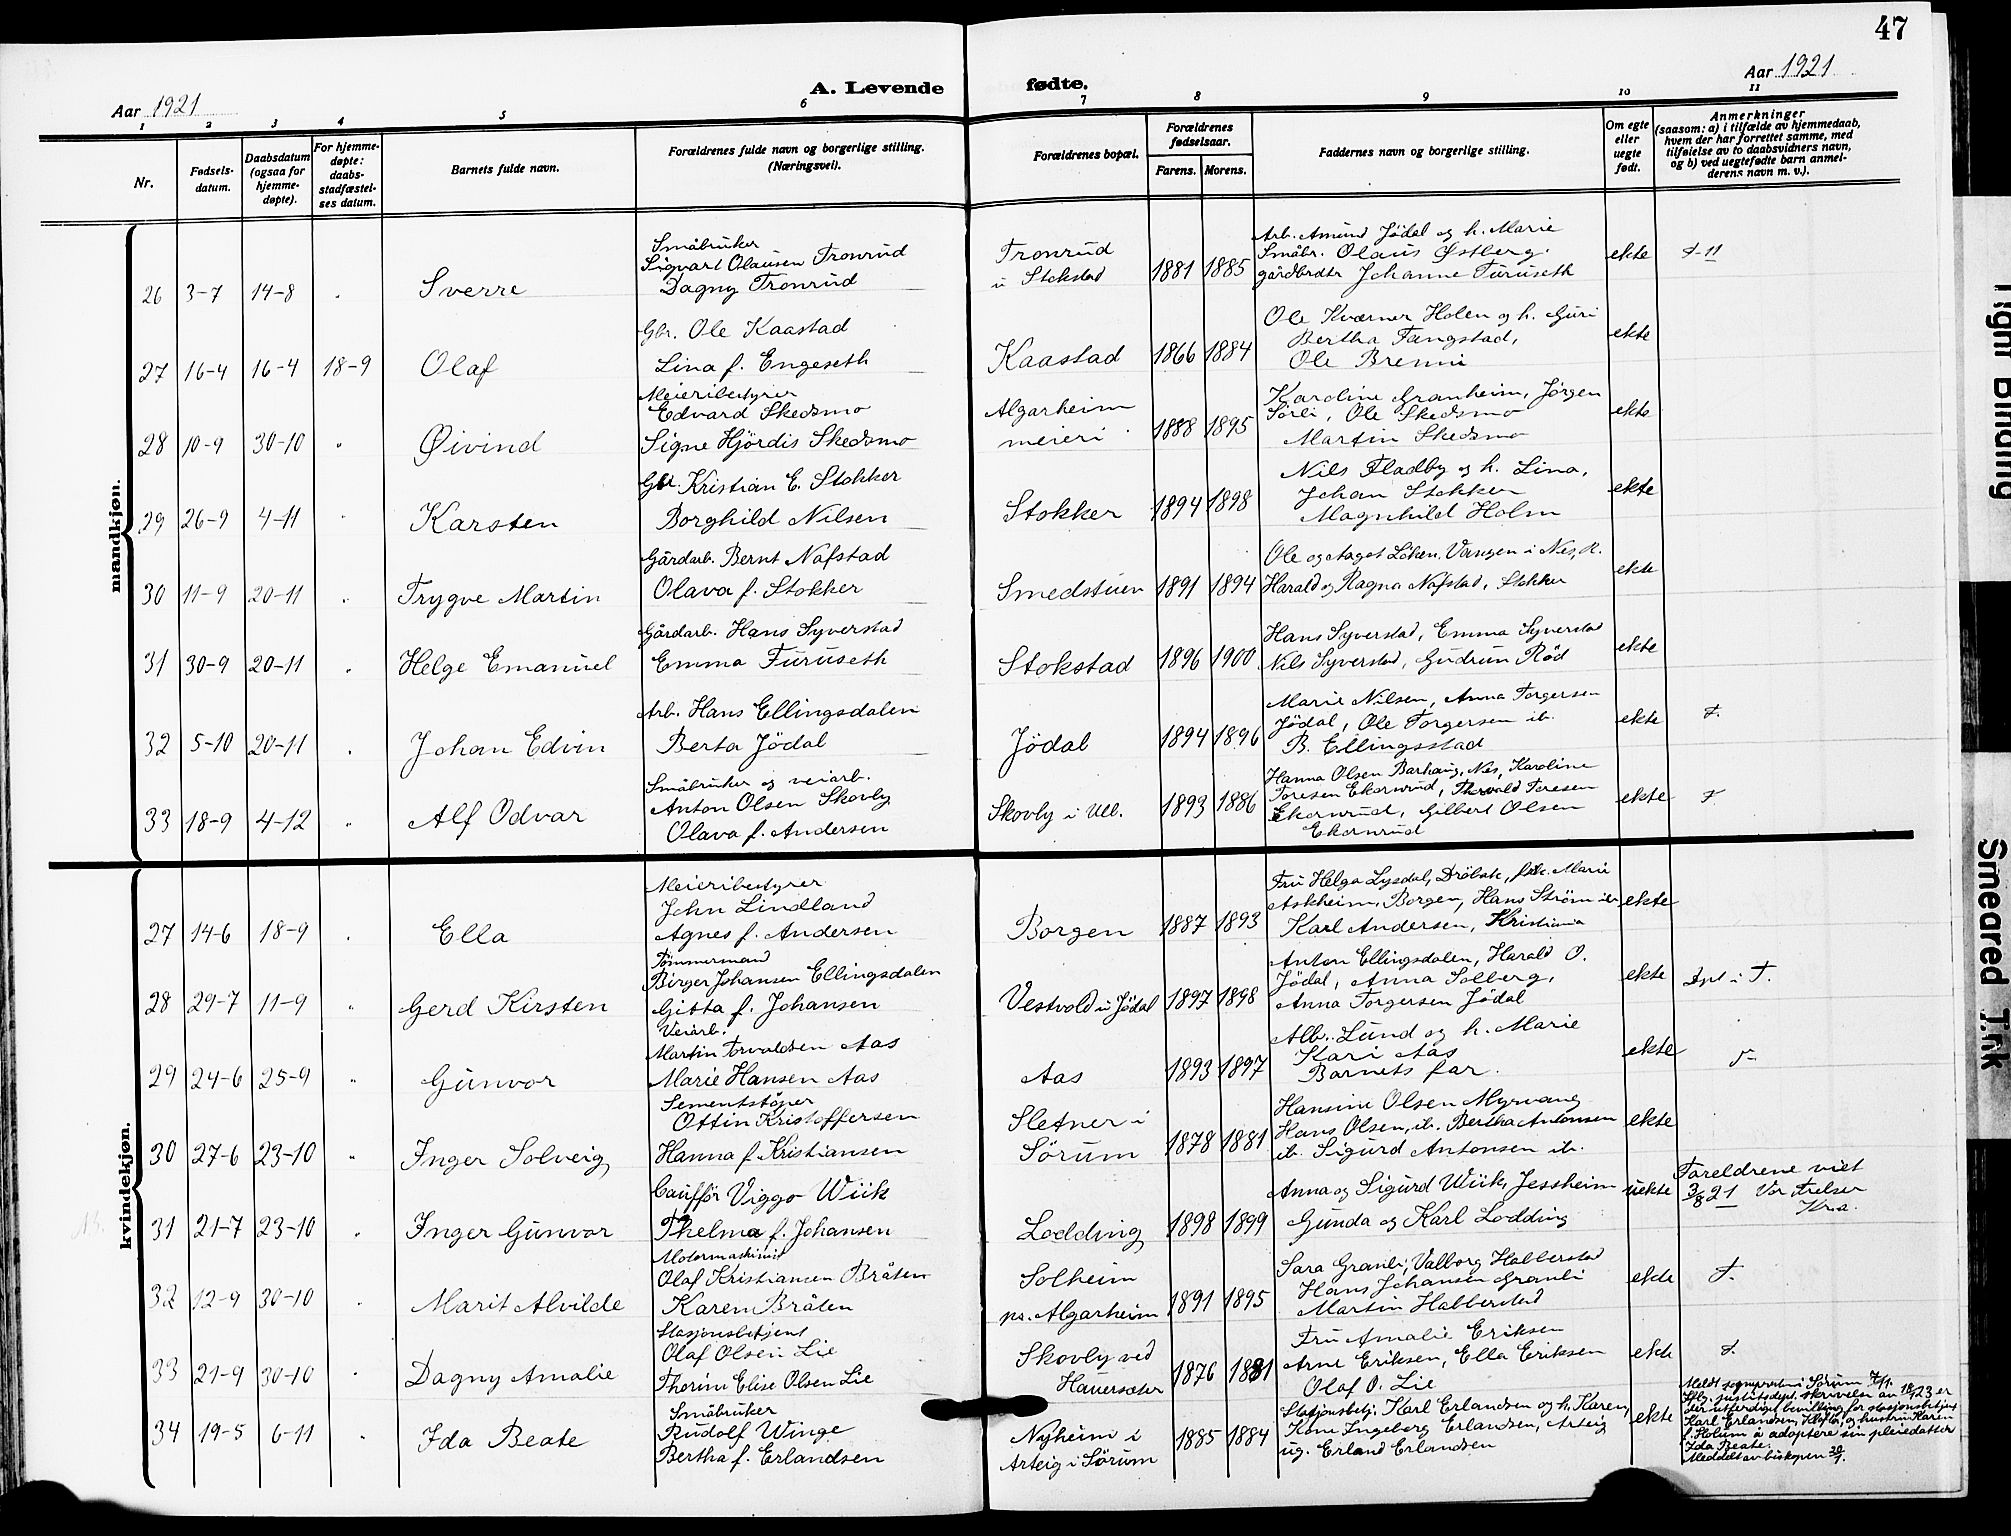 47
A. Levende fødte.
Aar 1921
Aar 1921
1 2 3 4 5 6 7 8 9 10 11
Nr.
Fødsels-
datum.
Daabsdatum
(ogsaa for
hjemme-
døpte).
For hjemme-
døpte:
daabs-
stadfæstel-
ses datum.
Barnets fulde navn.
Forældrenes fulde navn og borgerlige stilling.
(Næringsvei).
Forældrenes bopæl.
Forældrenes
fødselsaar.
Farens. Morens.
Faddernes navn og borgerlige stilling.
Om egte
eller
uegte
født.
Anmerkninger
(saasom: a) i tilfælde av hjemmedaab,
hvem der har forrettet samme, med
tilføielse av to daabsvidners navn,
og b) ved uegtefødte barn anmel-
derens navn m. v.).
mandkjøn.
26 3-7 14-8 Sverre
Småbruker
Sigvart Olausen Tronrud
Dagny Tronrud
Tronrud
u Stokstad
1881 1885
Arb. Amund Jödal og h. Marie
Småbr. Olaus Østberg.
gårdbrdtr Johanne Furuseth
ekte
27 16-4 16-4 18-9 Olaf
Gbr. Ole Kaastad
Lina f. Engeseth
Kaastad
1866 1884
Ole Kværner Holen og h. Guri
Bertha Fangstad,
Ole Brenni
ekte
28 10-9 30-10 " Øivind
Meieribestyrer
Edvard Skedsmo
Signe Hjördis Skedsmo
Algarheim
meieri
1888 1895
Karoline Granheim, Jörgen
Sörli, Ole Skedsmo
Martin Skedsmo
ekte
29 26-9 4-11 Karsten
Gbr. Kristian E. Stokker
Borghild Nilsen
Stokker
1894 1898
Nils Fladby og h. Lina,
Johan Stokker
Magnhild Holm
ekte
30 11-9 20-11 Trygve Martin
Gårdarb. Bernt Nafstad
Olava f. Stokker
Smedstuen
1891 1894
Ole og Aagot Löken, Vangen i Nes, R.
Harald og Ragna Nafstad, Stokker
ekte
31 30-9 20-11 Helge Emanuel
Gårdarb. Hans Syverstad
Emma Furuseth
Stokstad
1896 1900
Hans Syverstad, Emma Syverstad
Nils Syverstad, Gudrun Röd
ekte
32 5-10 20-11 Johan Edvin
Arb. Hans Ellingsdalen
Berta Jödal
Jödal
1894 1896
Marie Nilsen, Anna Torgersen
Jödal, Ole Torgersen ib.
B. Ellingsstad
ekte
33 18-9 4-12 Alf Odvar
Småbruker og veiarb.
Anton Olsen Skovly
Olava f. Andersen
Skovly i Ull.
1893 1886
Hanna Olsen Barhaug, Nes, Karoline
Toresen Ekornrud, Thorvald Toresen
Ekornrud, Gilbert Olsen
Ekornrud
ekte
kvindekjøn.
27 14-6 18-9 Ella
Meieribestyrer
John Lindland
Agnes f. Andersen
Borgen
1887 1893
Fru Helga Lysdal, Dröbak, frk. Marie
Askheim, Borgen, Hans Ström ib
Karl Andersen, Kristiania
ekte
28 29-7 11-9 " Gerd Kirsten
Tömmermand
Birger Johansen Ellingsdalen
Gitta f. Johansen
Vestvold u Jödal
1897 1898
Anton Ellingsdalen, Harald O.
Jödal, Anna Solberg,
Anna Torgersen Jödal
ekte
Dpt i T.
29 24-6 25-9 " Gunvor
Veiarb.
Martin Torvaldsen Aas
Marie Hansen Aas
Aas
1893 1897
Alb. Lund og h. Marie
Kari Aas
Barnets far.
ekte
30 27-6 23-10 " Inger Solveig
Sementstöper
Ottin Kristoffersen
Hanna f. Kristiansen
Sletner i
Sörum
1878 1881
Hansine Olsen Myrvang
Hans Olsen, ib. Bertha Antonsen
ib. Sigurd Antonsen ib.
ekte
31 21-7 23-10 Inger Gunvor
Caufför Viggo Wiik
Thelma f. Johansen
Lodding
1898 1899
Anna og Sigurd Wiik, Jessheim
Gunda og Karl Lodding
uekte
Foreldrene viet
3/8 21 Vor Frelser
Kra.
32 12-9 30-10 Marit Alvilde
Motormaskinist
Olaf Kristiansen Bråten
Karen Bråten
Solheim
pr. Algarheim
1891 1895
Sara Granli, Valborg Habberstad
Hans Johansen Granli
Martin Habberstad
ekte
33 21-9 30-10 Dagny Amalie
Stasjonsbetjent
Olaf Olsen Lie
Thorine Elise Olsen Lie
Skovly ved
Hauerseter
1876 1881
Fru Amalie Eriksen
Arne Eriksen, Ella Eriksen
Olaf O. Lie
ekte
34 19-5 6-11 Ida Beate
Småbruker
Rudolf Winge
Bertha f. Erlandsen
Nyheim i
Arteig i Sörum
1885 1884
Stasjonsbetj. Karl Erlandsen og h. Karen,
Kone Ingeborg Erlandsen, Arteig
ug. Erland Erlandsen
ekte
Meldt sogneprest i Sörum
justitsdept. skrivelse av 23 er
der utferdiget bevilling for stasjonsbetjent
Karl Erlandsen, og hustru Karen
f. Holum å adoptere sin pleiedatter
Ida Beate.
Meddelt av biskopen
Smeared Tirk